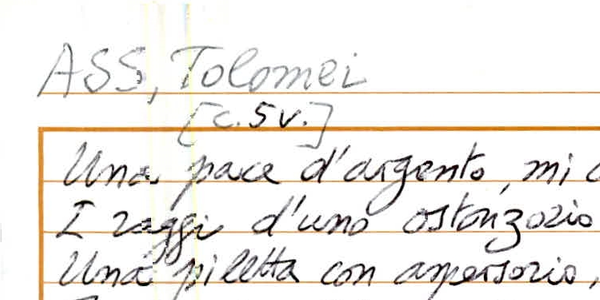 ASS, Tolomei
[c. 5v.]
Una pace d'argento, mi
I raggi d'uno ostenzorio
Una piletta con aspersorio,